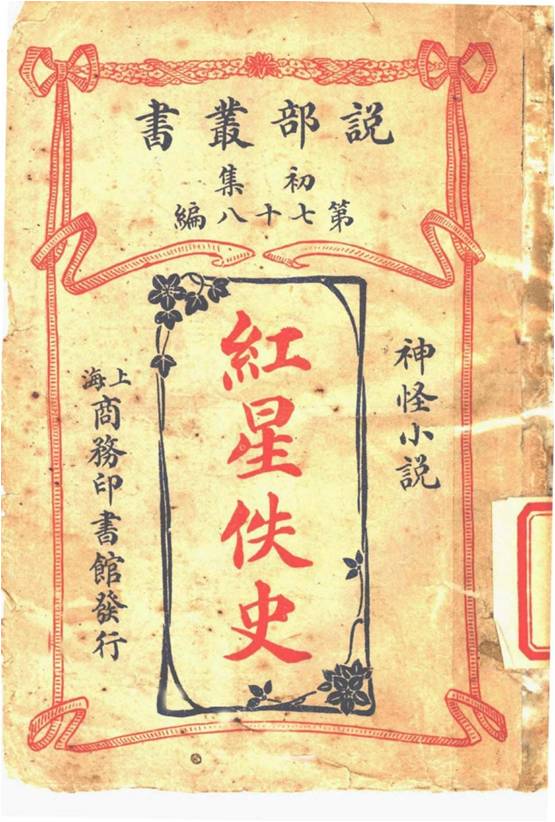 説部叢書
初集
第七十八編
神怪小説
紅星佚史
上海商務印書館發行